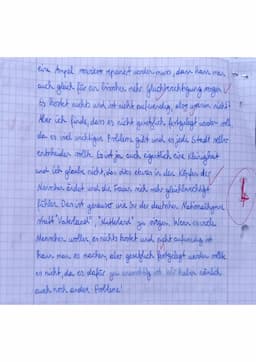 eine Ampel sowieso repariert werden muss, dann kann man
auch gleich für ein bisschen mehr Gleichberechtigung sorgen.
Es kostet nichts und ist nicht aufwendig, also warum nicht?
Aber ich finde, dass es nicht gesetzlich festgelegt werden soll,
da es viel wichtigere Probleme gibt und es jede Stadt selbst
entscheiden sollte. Es ist ja auch eigentlich eine Kleinigkeit
und ich glaube nicht, dass dies etwas in den Köpfen der
Menschen ändert und die Frauen sich mehr gleichberechtigt
fühlen. Das ist genauso wie bei der deutschen Nationalhymne
statt "Vaterland", "Mutterland" zu singen. Wenn es viele
Menschen wollen, es nichts kostet und nicht aufwendig ist
kann man es machen, aber gesetzlich festgelegt werden sollte
es nicht, da es dafür zu unwichtig ist. Wir haben nämlich
auch noch andere Probleme!